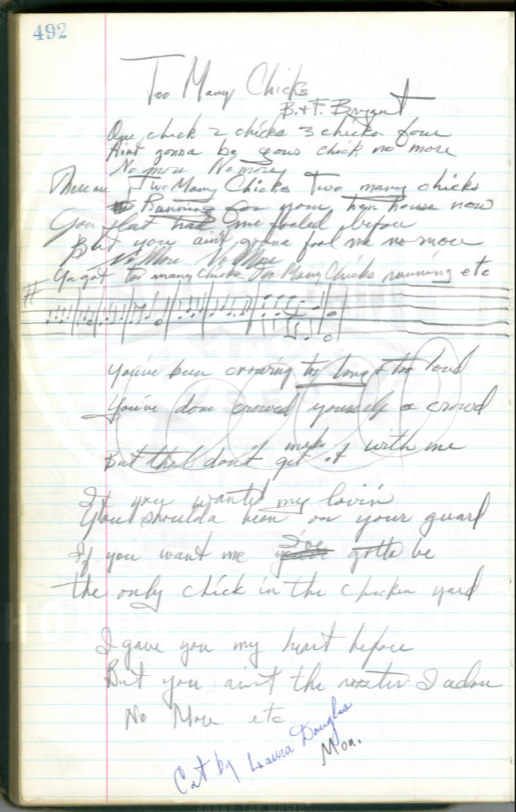 492
Too Many Chicks
B. & F. Bryant
One chick 2 chicks 3 chicks four
Aint gonna be your chick no more
No more No more
Two Many Chicks Two many chicks
Running for your hen house now
You flat had me fooled before
But you aint gonna fool me no more
No More No More
Ya got too many chicks Too Many Chicks running etc
You've been crowing too long & too loud
You've done crowed yourself a crowd
But that don't get it with me
If you wanted my lovin
You shoulda been on your guard
If you want me I've gotta be
the only chick in the chicken yard
I gave you my heart before
But you ain't the rooster I adore
No More etc
Cut by Laura Douglas
Mon.